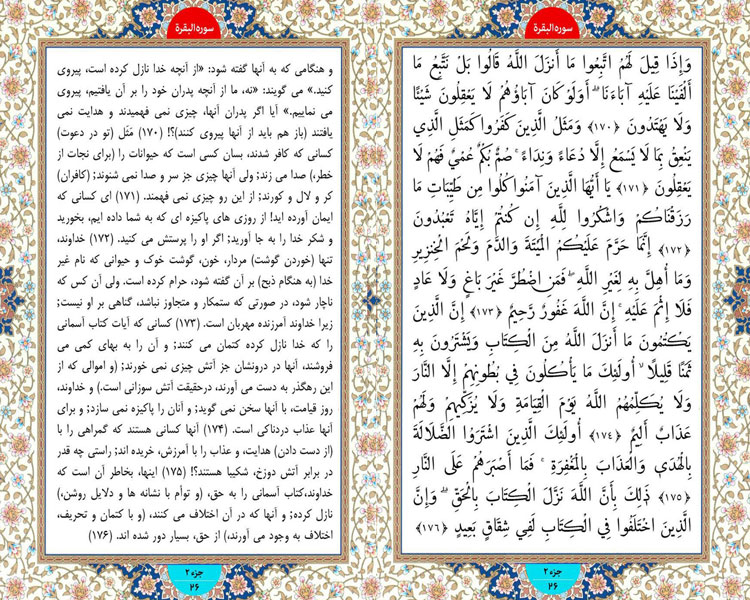 سوره‌البقرة
وَإِذَا قِيلَ لَهُمُ اتَّبِعُوا مَا أَنزَلَ اللَّهُ قَالُوا بَلْ نَتَّبِعُ مَا
أَلْفَيْنَا عَلَيْهِ آبَاءَنَا ۗ أَوَلَوْ كَانَ آبَاؤُهُمْ لَا يَعْقِلُونَ شَيْئًا
وَلَا يَهْتَدُونَ ﴿١٧٠﴾ وَمَثَلُ الَّذِينَ كَفَرُوا كَمَثَلِ الَّذِي
يَنْعِقُ بِمَا لَا يَسْمَعُ إِلَّا دُعَاءً وَنِدَاءً ۚ صُمٌّ بُكْمٌ عُمْيٌ فَهُمْ لَا
يَعْقِلُونَ ﴿١٧١﴾ يَا أَيُّهَا الَّذِينَ آمَنُوا كُلُوا مِن طَيِّبَاتِ مَا
رَزَقْنَاكُمْ وَاشْكُرُوا لِلَّهِ إِن كُنتُمْ إِيَّاهُ تَعْبُدُونَ
﴿١٧٢﴾ إِنَّمَا حَرَّمَ عَلَيْكُمُ الْمَيْتَةَ وَالدَّمَ وَلَحْمَ الْخِنزِيرِ
وَمَا أُهِلَّ بِهِ لِغَيْرِ اللَّهِ ۖ فَمَنِ اضْطُرَّ غَيْرَ بَاغٍ وَلَا عَادٍ
فَلَا إِثْمَ عَلَيْهِ ۚ إِنَّ اللَّهَ غَفُورٌ رَّحِيمٌ ﴿١٧٣﴾ إِنَّ الَّذِينَ
يَكْتُمُونَ مَا أَنزَلَ اللَّهُ مِنَ الْكِتَابِ وَيَشْتَرُونَ بِهِ
ثَمَنًا قَلِيلًا ۙ أُولَٰئِكَ مَا يَأْكُلُونَ فِي بُطُونِهِمْ إِلَّا النَّارَ
وَلَا يُكَلِّمُهُمُ اللَّهُ يَوْمَ الْقِيَامَةِ وَلَا يُزَكِّيهِمْ وَلَهُمْ
عَذَابٌ أَلِيمٌ ﴿١٧٤﴾ أُولَٰئِكَ الَّذِينَ اشْتَرَوُا الضَّلَالَةَ
بِالْهُدَىٰ وَالْعَذَابَ بِالْمَغْفِرَةِ ۚ فَمَا أَصْبَرَهُمْ عَلَى النَّارِ
﴿١٧٥﴾ ذَٰلِكَ بِأَنَّ اللَّهَ نَزَّلَ الْكِتَابَ بِالْحَقِّ ۗ وَإِنَّ
الَّذِينَ اخْتَلَفُوا فِي الْكِتَابِ لَفِي شِقَاقٍ بَعِيدٍ ﴿١٧٦﴾
جزء ۲
۲۶
سوره‌البقرة
و هنگامی که به آنها گفته شود: «از آنچه خدا نازل کرده است، پیروی
کنید.» می گویند: «نه، ما از آنچه پدران خود را بر آن یافتیم، پیروی
می نماییم.» آیا اگر پدران آنها، چیزی نمی فهمیدند و هدایت نمی
یافتند (باز هم باید از آنها پیروی کنند)؟! (۱۷۰) مَثَل (تو در دعوت)
کسانی که کافر شدند، بسان کسی است که حیوانات را (برای نجات از
خطر،) صدا می زند; ولی آنها چیزی جز سر و صدا نمی شنوند; (کافران)
کر و لال و کورند; از این رو چیزی نمی فهمند. (۱۷۱) ای کسانی که
ایمان آورده اید! از روزی های پاکیزه ای که به شما داده ایم، بخورید
و شکر خدا را به جا آورید; اگر او را پرستش می کنید. (۱۷۲) خداوند،
تنها (خوردن گوشت) مردار، خون، گوشت خوک و حیوانی که نام غیر
خدا (به هنگام ذبح) بر آن گفته شود، حرام کرده است. ولی آن کس که
ناچار شود، در صورتی که ستمکار و متجاوز نباشد، گناهی بر او نیست;
زیرا خداوند آمرزنده مهربان است. (۱۷۳) کسانی که آیات کتاب آسمانی
را که خدا نازل کرده کتمان می کنند; و آن را به بهای کمی می
فروشند، آنها در درونشان جز آتش چیزی نمی خورند; (و اموالی که از
این رهگذر به دست می آورند، درحقیقت آتش سوزانی است.) و خداوند،
روز قیامت، با آنها سخن نمی گوید; و آنان را پاکیزه نمی سازد; و برای
آنها عذاب دردناکی است. (۱۷۴) آنها کسانی هستند که گمراهی را با
(از دست دادن) هدایت، و عذاب را با آمرزش، خریده اند; راستی چه قدر
در برابر آتش دوزخ، شکیبا هستند؟!! (۱۷۵) اینها، بخاطر آن است که
خداوند،کتاب آسمانی را به حق، (و توأم با نشانه ها و دلایل روشن،)
نازل کرده; و آنها که در آن اختلاف می کنند، (و با کتمان و تحریف،
اختلاف به وجود می آورند،) از حق، بسیار دور شده اند. (۱۷۶)
جزء ۲
۲۶